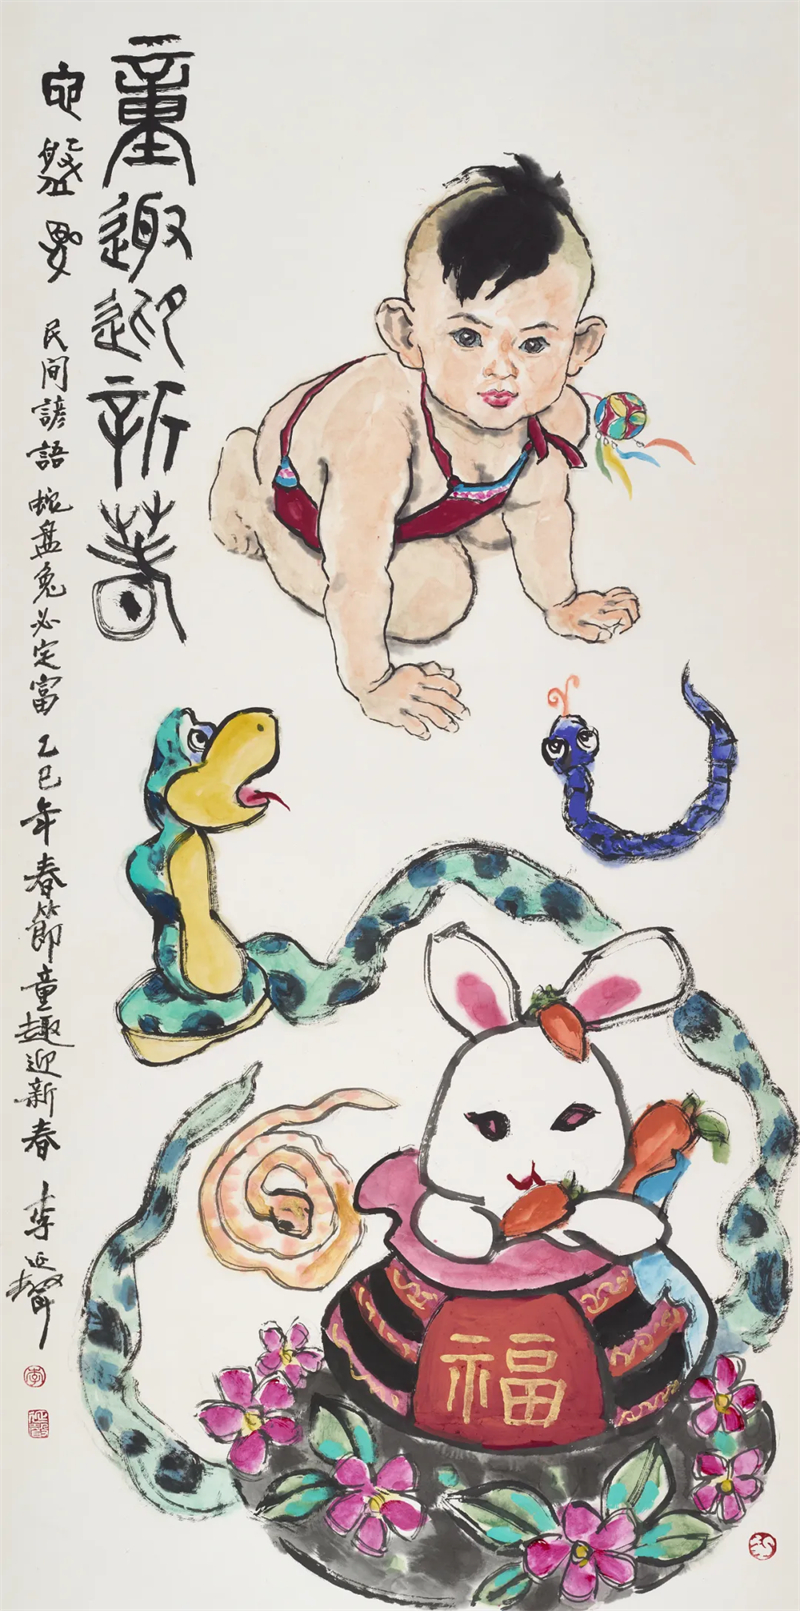 童趣迎新春
它盤兔 民间諺語 蛇盘兔必定富 乙巳年春節童趣迎新春 李延聲
福